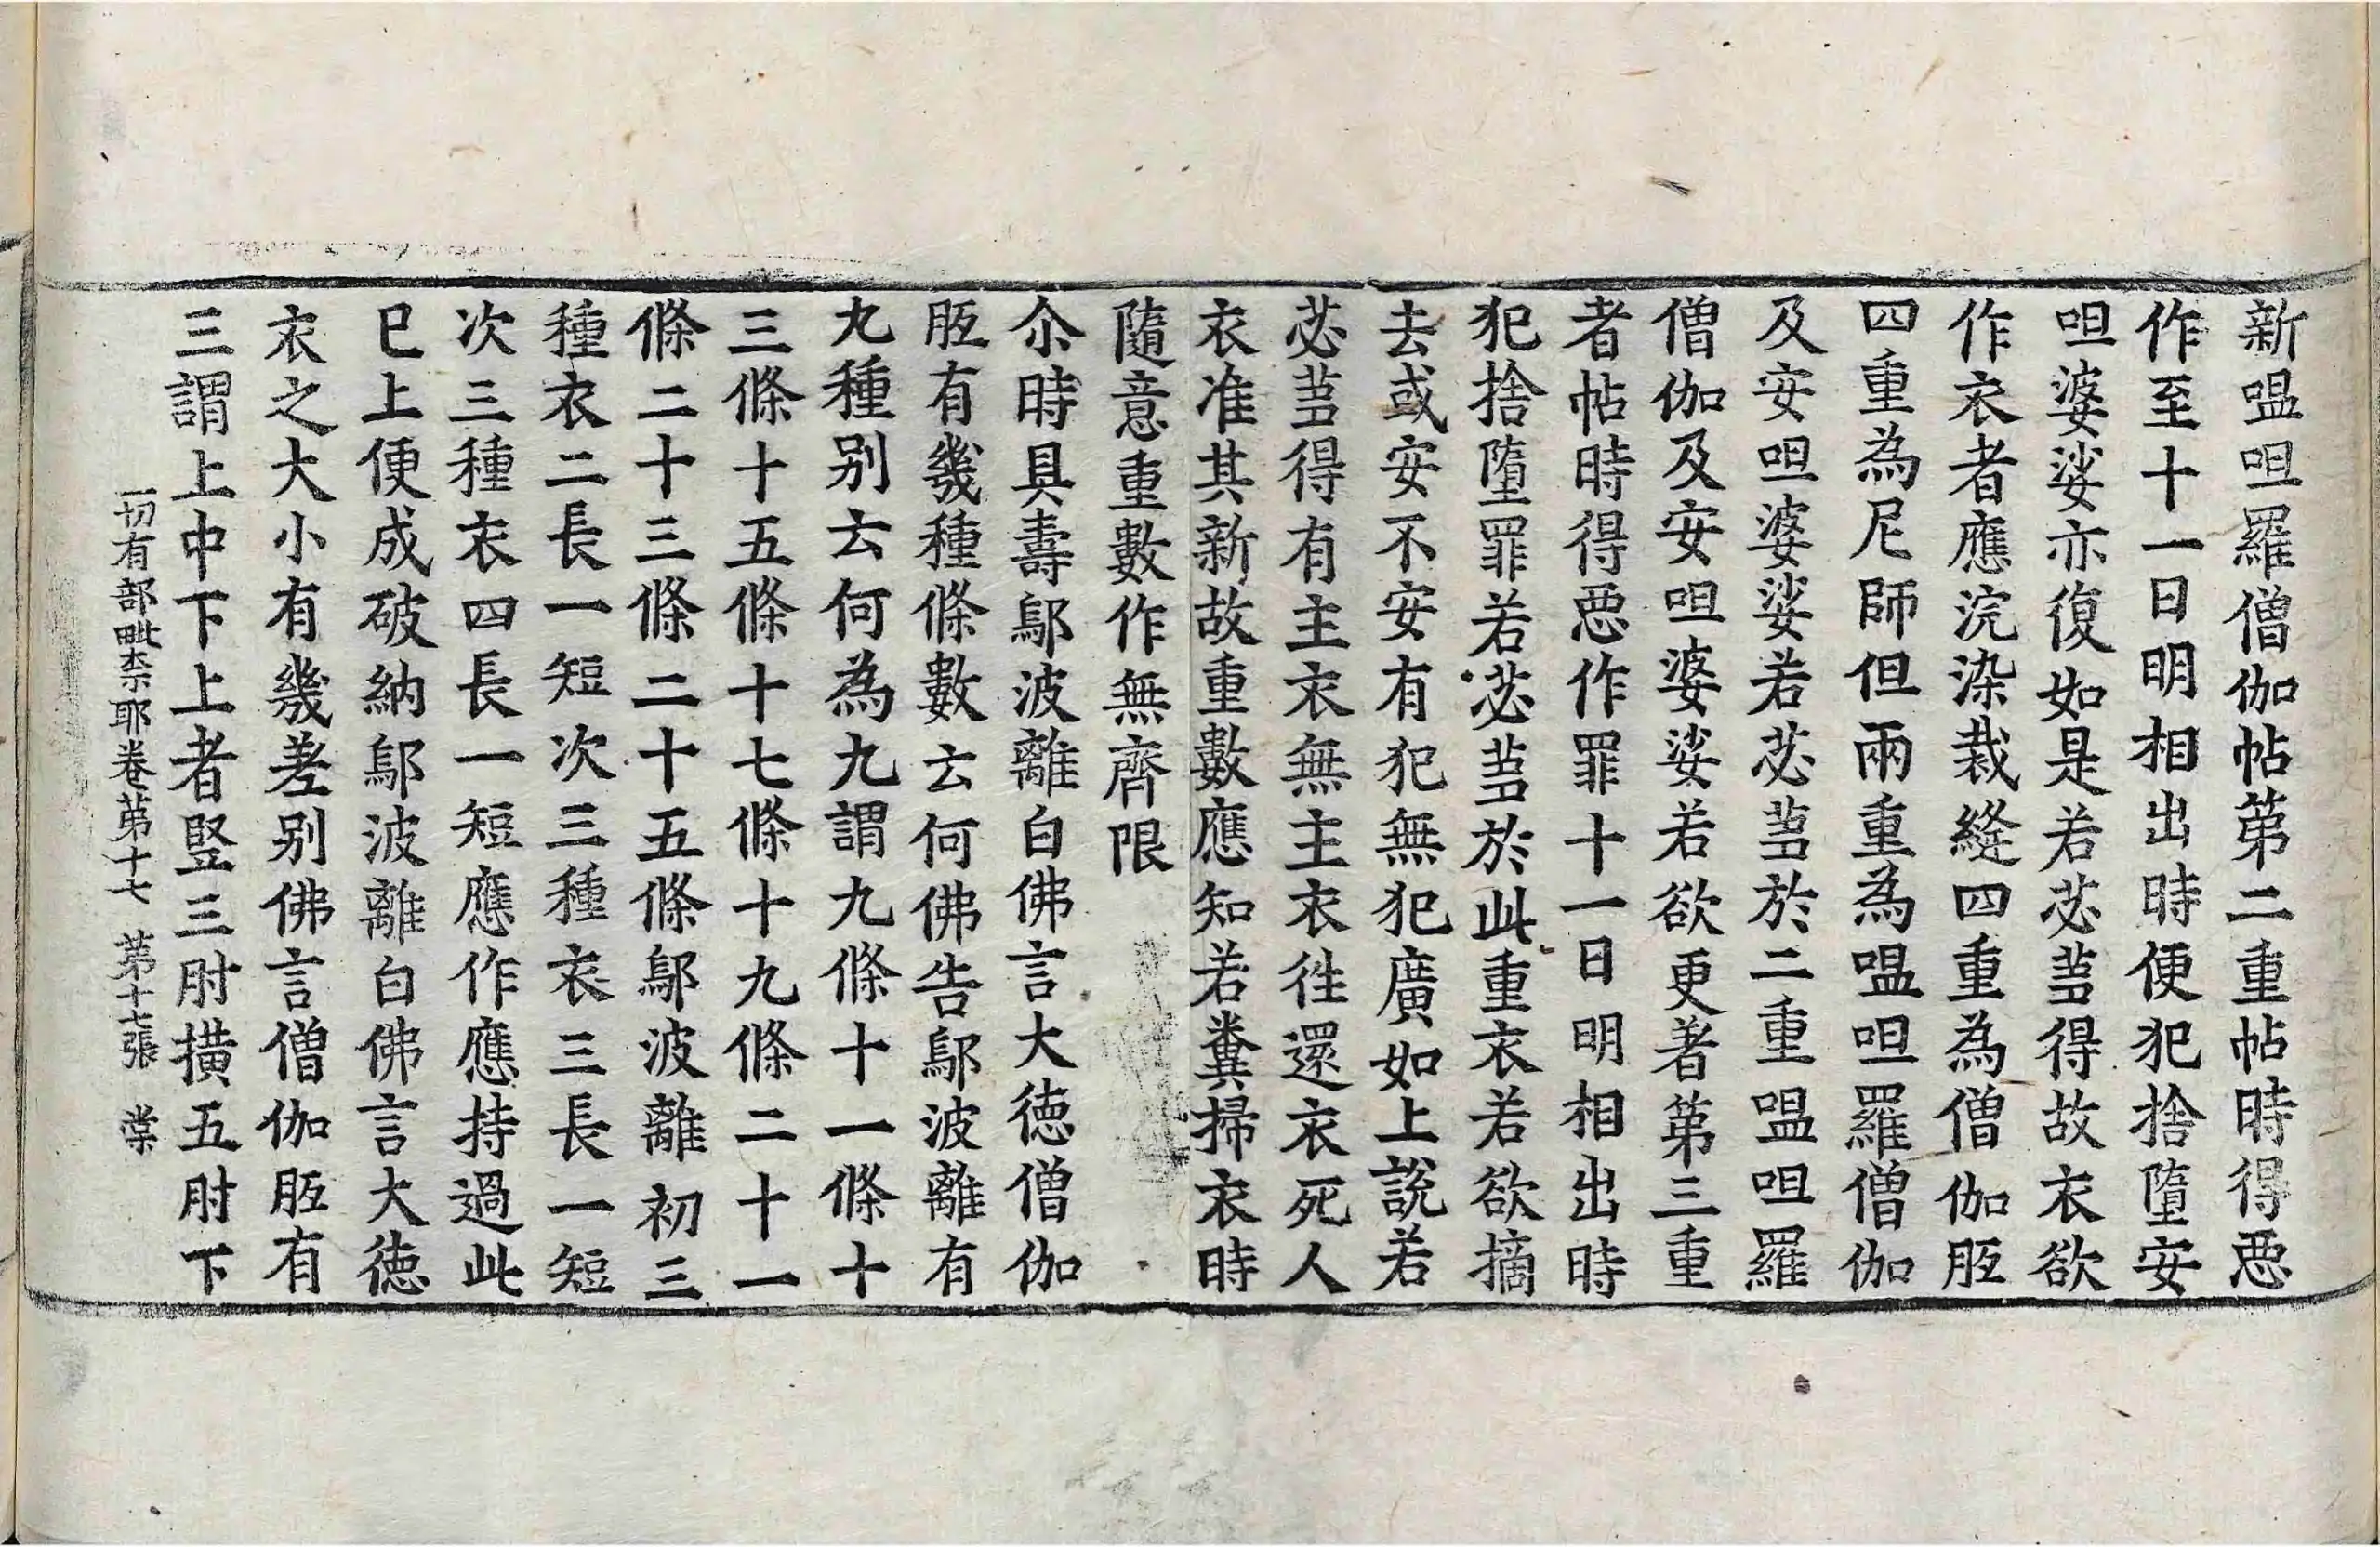 新嗢呾羅僧伽帖第二重帖時得惡
作至十一日明相出時便犯捨墮安
呾婆娑亦復如是若苾芻得故衣欲
作衣者應浣染裁縫四重為僧伽胝
四重為尼師但兩重為嗢呾羅僧伽
及安呾婆娑若苾芻於二重嗢呾羅
僧伽及安呾婆娑若欲更著第三重
者帖時得惡作罪十一日明相出時
犯捨墮罪若苾芻於此重衣若欲摘
去或安不安有犯無犯廣如上說若
苾芻得有主衣無主衣往還衣死人
衣准其新故重數應知若糞掃衣時
隨意重數作無齊限
尒時具壽鄔波離白佛言大德僧伽
胝有幾種條數云何佛告鄔波離有
九種別云何為九謂九條十一條十
三條十五條十七條十九條二十一
條二十三條二十五條鄔波離初三
種衣二長一短次三種衣三長一短
次三種衣四長一短應作應持過此
已上便成破納鄔波離白佛言大德
衣之大小有幾差別佛言僧伽胝有
三謂上中下上者竪三肘橫五肘下
一切有部毗柰耶卷第十七 第十七張 棠